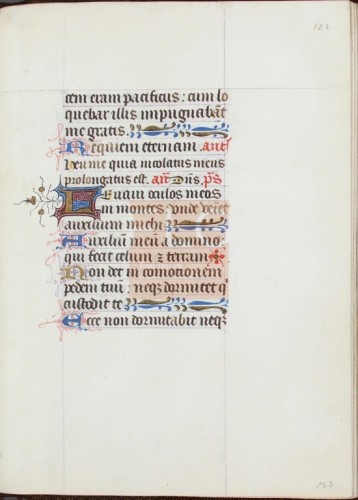 123
cem eram pacificus : cum lo
quebar illis impugnabāt
me gratis.
Requiem eternam. añt
Heu me quia incolatus meus
prolongatus est. añ. Dñs. p̄s
Leuaui oculos meos
in montes : vnde veniet
auxilium michi
Auxiliū meū a domino :
qui fecit celum ⁊ terram
Non det in comotionem
pedem tuū : neqꝫ dormitet q̄
custodit te
Ecce non dormitabit neqꝫ
123